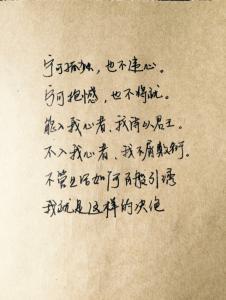 宁可孤独，也不违心。
宁可抱憾，也不将就。
能入我心者，我待以君王。
不入我心者，我不屑敷衍。
不管生活如何百般引诱
我就是这样的决绝